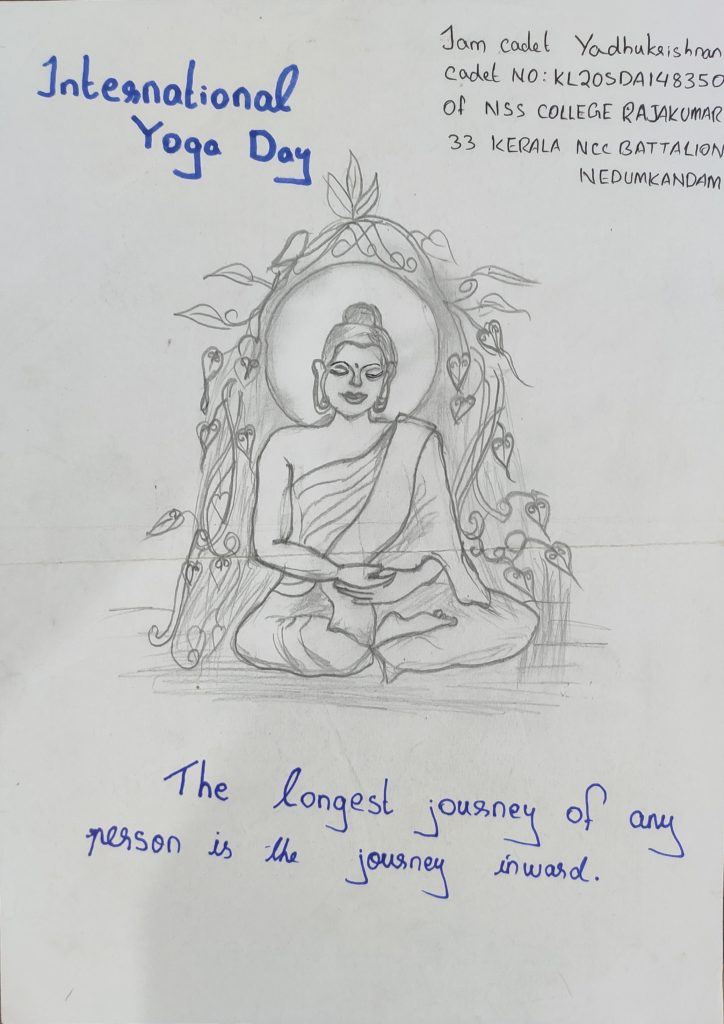 International
Yoga Day
Iam cadet Yadhukrishnan
cadet NO: KL20SDA148350
Of NSS COLLEGE RAJAKUMAR
33 KERALA NCC BATTALION
NEDUMKANDAM
The longest journey of any
person is the journey inward.